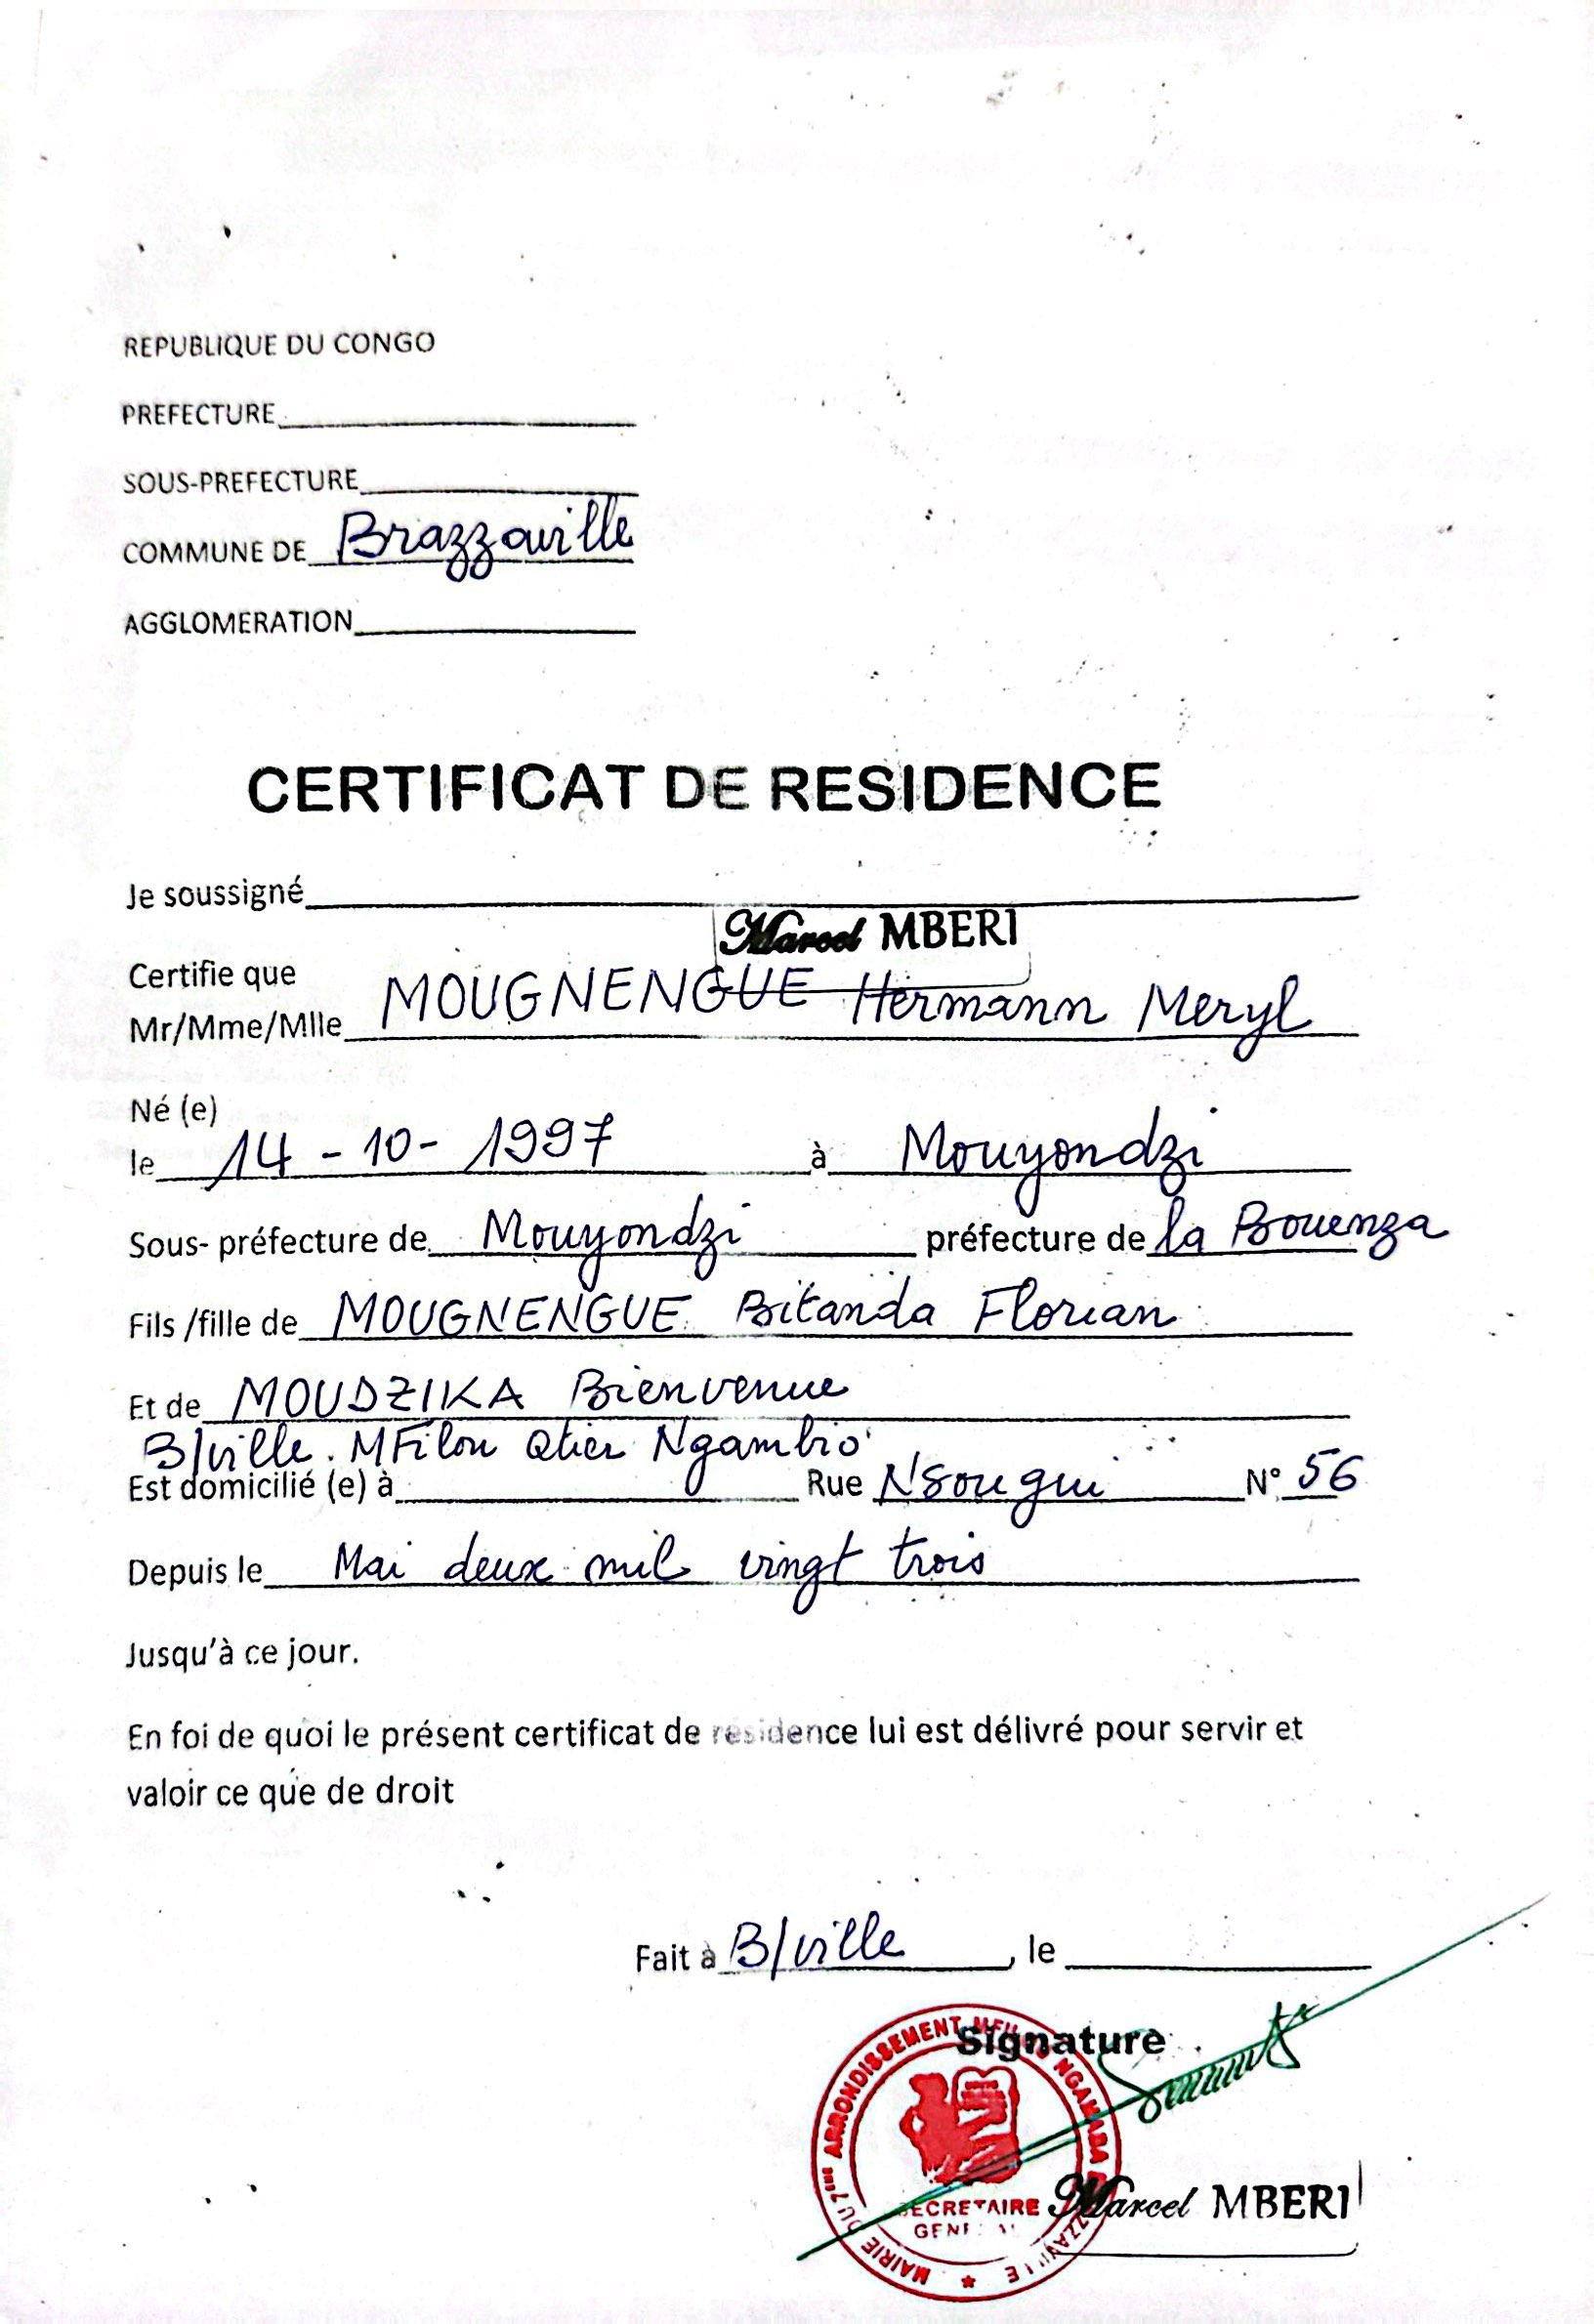 REPUBLIQUE DU CONGO
PREFECTURE
SOUS-PREFECTURE
COMMUNE DE Brazzaville
AGGLOMERATION
CERTIFICAT DE RESIDENCE
Je soussigné
Marcel MBERI
Certifie que
Mr/Mme/Mlle MOUGNENGUE Hermann Meryl
Né (e)
le 14-10-1997 à Mouyondzi
Sous- préfecture de Mouyondzi préfecture de la Bouenza
Fils /fille de MOUGNENGUE Bitanda Florian
Et de MOUDZIKA Bienvenue
B/ville. MFilou Qtier Ngambio
Est domicilié (e) à Rue Nsougui N° 56
Depuis le Mai deux mil vingt trois
Jusqu'à ce jour.
En foi de quoi le présent certificat de résidence lui est délivré pour servir et
valoir ce que de droit
Fait à B/ville , le
Signature
MAIRIE DU 7ème ARRONDISSEMENT NGAMABA
SECRETAIRE
Marcel MBERI